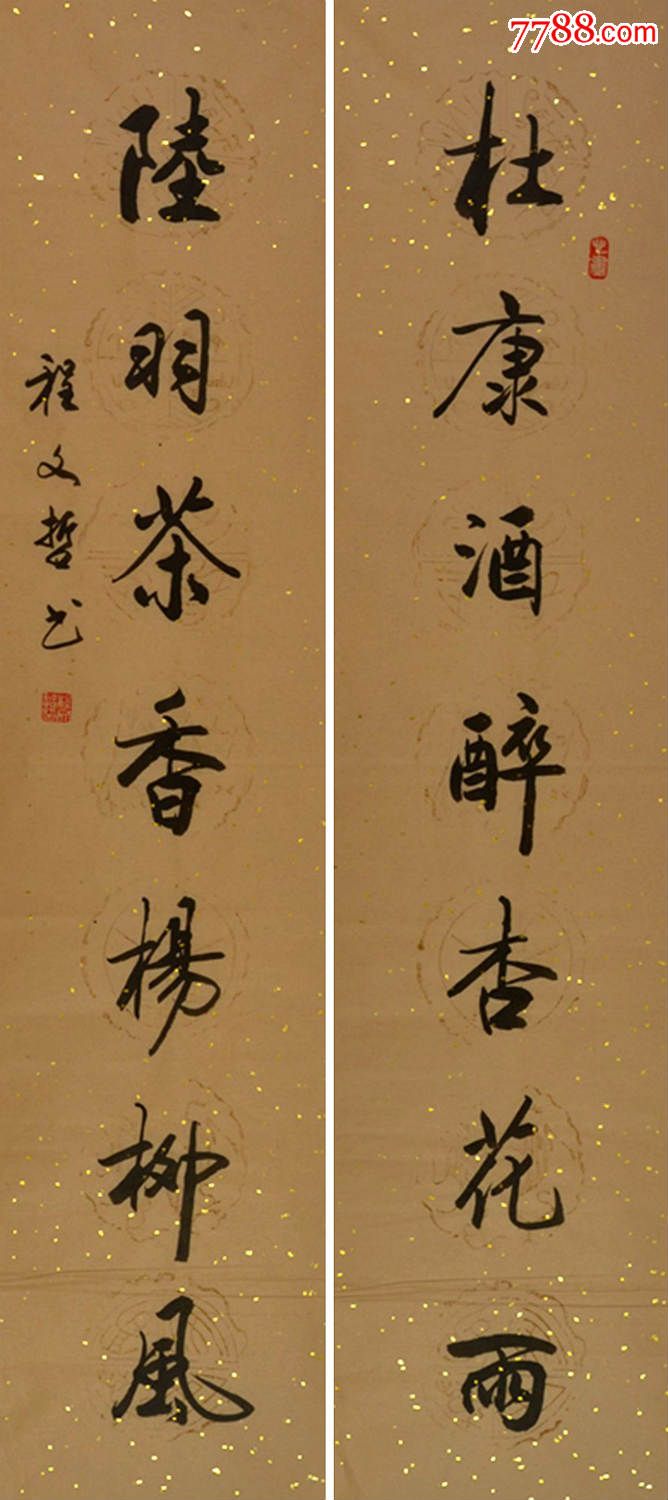 7788.com
杜康酒醉杏花雨
陸羽茶香楊柳風
程文哲书